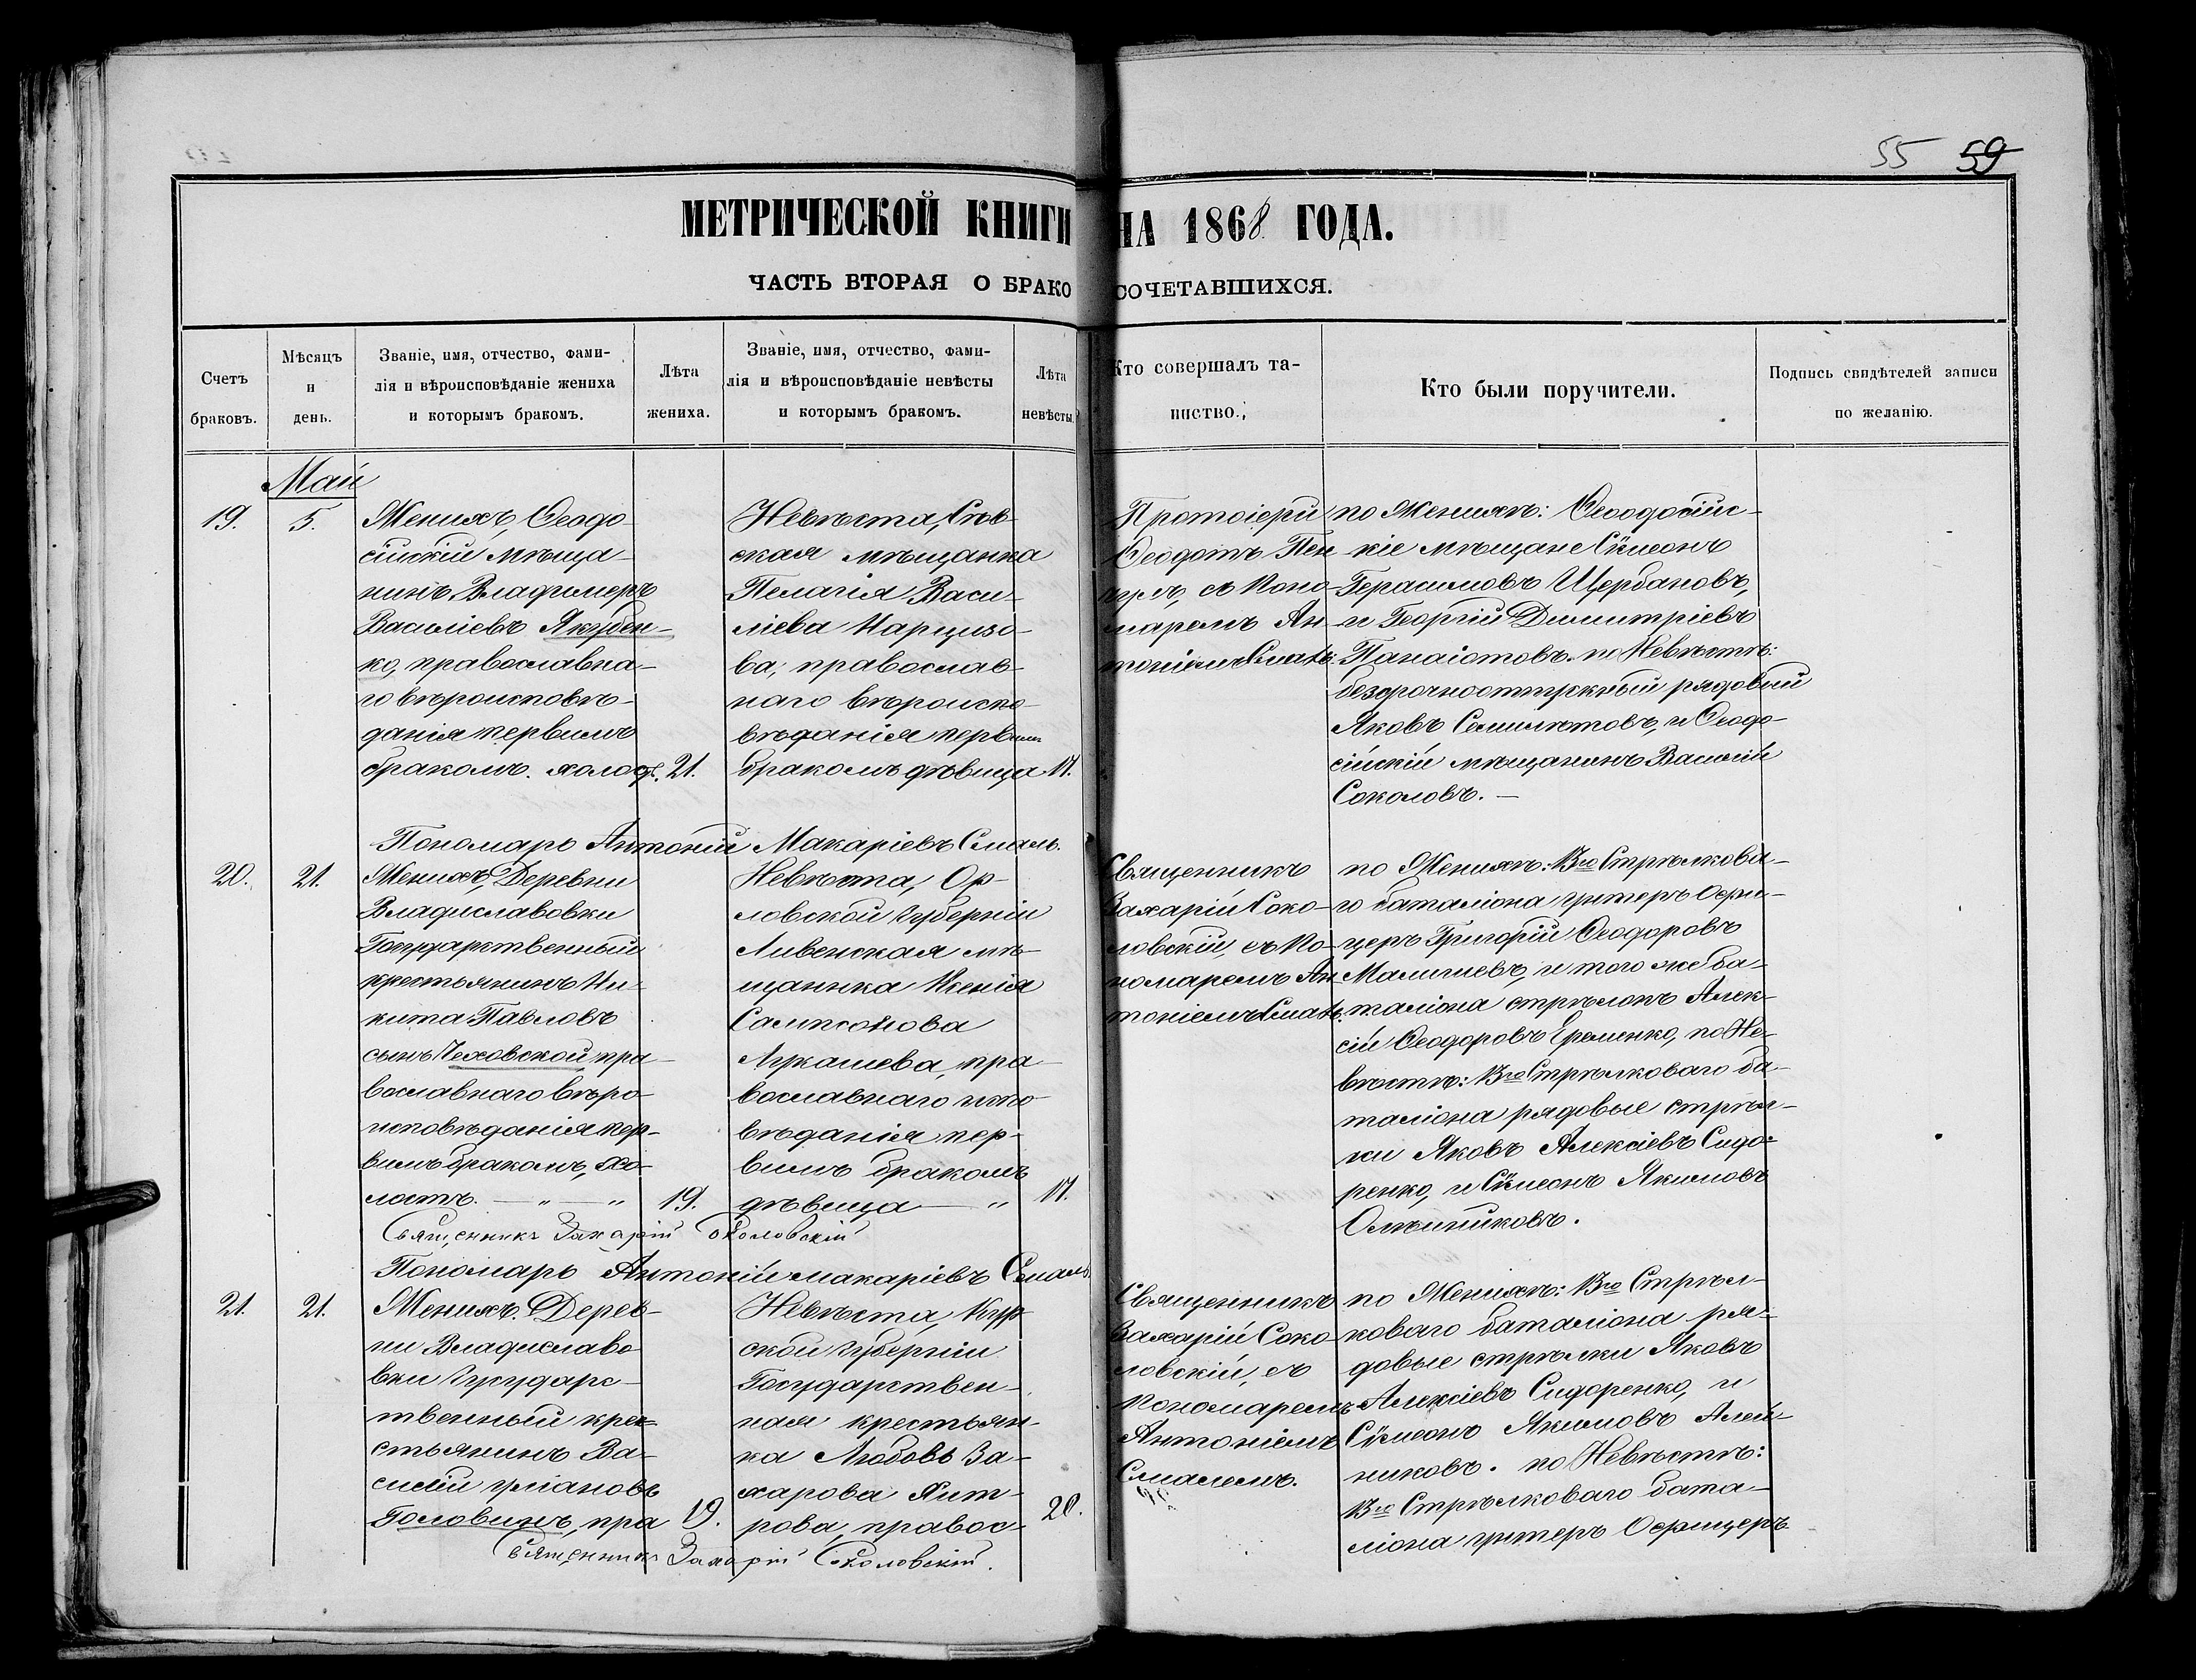 55 59
МЕТРИЧЕСКОЙ КНИГИ НА 1868 ГОДА.
ЧАСТЬ ВТОРАЯ О БРАКОСОЧЕТАВШИХСЯ.
Счетъ
браковъ.
Мѣсяцъ
и
день.
Званіе, имя, отчество, фами-
лія и вѣроисповѣданіе жениха
и которымъ бракомъ.
Лѣта
жениха.
Званіе, имя, отчество, фами-
лія и вѣроисповѣданіе невѣсты
и которымъ бракомъ.
Лѣта
невѣсты.
Кто совершалъ та-
инство.
Кто были поручители.
Подпись свидѣтелей записи
по желанію.
Май
19.
5.
Женихъ, Ѳеодо-
сійскій мѣща-
нинъ Владимеръ
Василіевъ Якубен-
ко, православна-
го вѣроисповѣ-
данія первимъ
бракомъ. холост.
21.
Невѣста, Сѣв-
ская мѣщанка
Пелагія Васи-
ліева Нарцизо-
ва, православ-
наго вѣроиспо-
вѣданія первым
бракомъ дѣвица
17.
Протоіерей
Ѳеодотъ
съ Поно-
маремъ Ан-
тоніемъ Смаль.
по Женихѣ: Ѳеодосійс-
кіе мѣщане Сѵмеонъ
Герасимовъ Щербаковъ,
и Георгій Димитріевъ
Панаіотовъ. по Невѣстѣ:
безсрочноотпускный рядовый
Яковъ Семилѣтовъ, и Ѳеодо-
сійскій мѣщанинъ Василій
Соколовъ. —
Пономарь Антоній Макаріевъ Смаль.
20.
21.
Женихъ, Деревни
Владиславовки
Государственный
крестьянинъ Ни-
кита Павловъ
сынъ Чеховской, пра-
вославнаго вѣро-
исповѣданія пер-
вимъ бракомъ, хо-
лостъ. — „ — „
19.
Невѣста, Ор-
ловской губерніи
Ливенская мѣ-
щанка Ксенія
Сампсонова
Лукашева, пра-
вославнаго испо-
вѣданія пер-
вимъ бракомъ
дѣвица — „
17.
Священникъ
Захарій Соко-
ловскій, съ По-
номаремъ Ан-
тоніемъ Смаль.
по Женихѣ: 13го Стрѣлкова-
го баталіона унтеръ Офи-
церъ Григорій Ѳеодоровъ
Малышевъ, и того же ба-
таліона стрѣлокъ Алек-
сій Ѳеодоровъ Еременко, по Не-
вѣстѣ: 13го Стрѣлковаго ба-
таліона рядовые стрѣл-
ки Яковъ Алексіевъ Сидо-
ренко, и Сѵмеонъ Якимовъ
Олейниковъ.
Священникъ Захарій Соколовскій
Пономарь Антоній Макаріевъ Смаль
21.
21.
Женихъ. Дерев-
ни Владиславо-
вки Государс-
твенный кре-
стьянинъ Ва-
силій Уліановъ
Головинъ, пра
19.
Невѣста, Кур-
ской губерніи
Государствен-
ная крестьян-
ка Любовь За-
харова Хит-
рова, правос-
20.
Священникъ
Захарій Соко-
ловскій, съ
Пономаремъ
Антоніемъ
Смалемъ.
по Женихѣ: 13го Стрѣл-
коваго баталіона ря-
довые стрѣлки Яковъ
Алексіевъ Сидоренко, и
Сѵмеонъ Якимовъ Алей-
никовъ. по Невѣстѣ:
13го Стрѣлковаго бата-
ліона унтеръ Офицеръ
Священникъ Захарій Соколовскій.